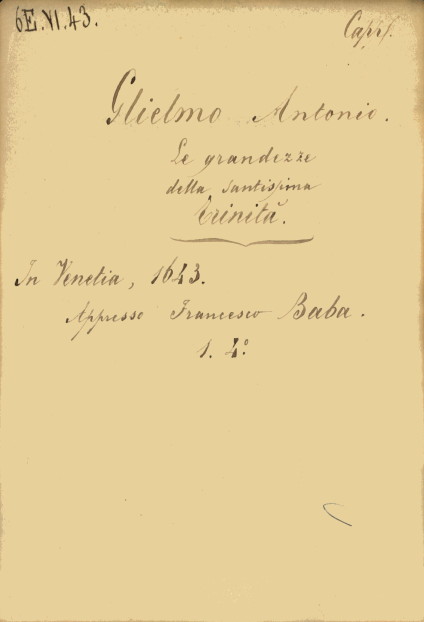 6E.VI.43.
Glielmo Antonio.
Le grandezze
della santissima
Trinità.
In Venetia, 1643.
Appresso Francesco Baba.
1. 4º